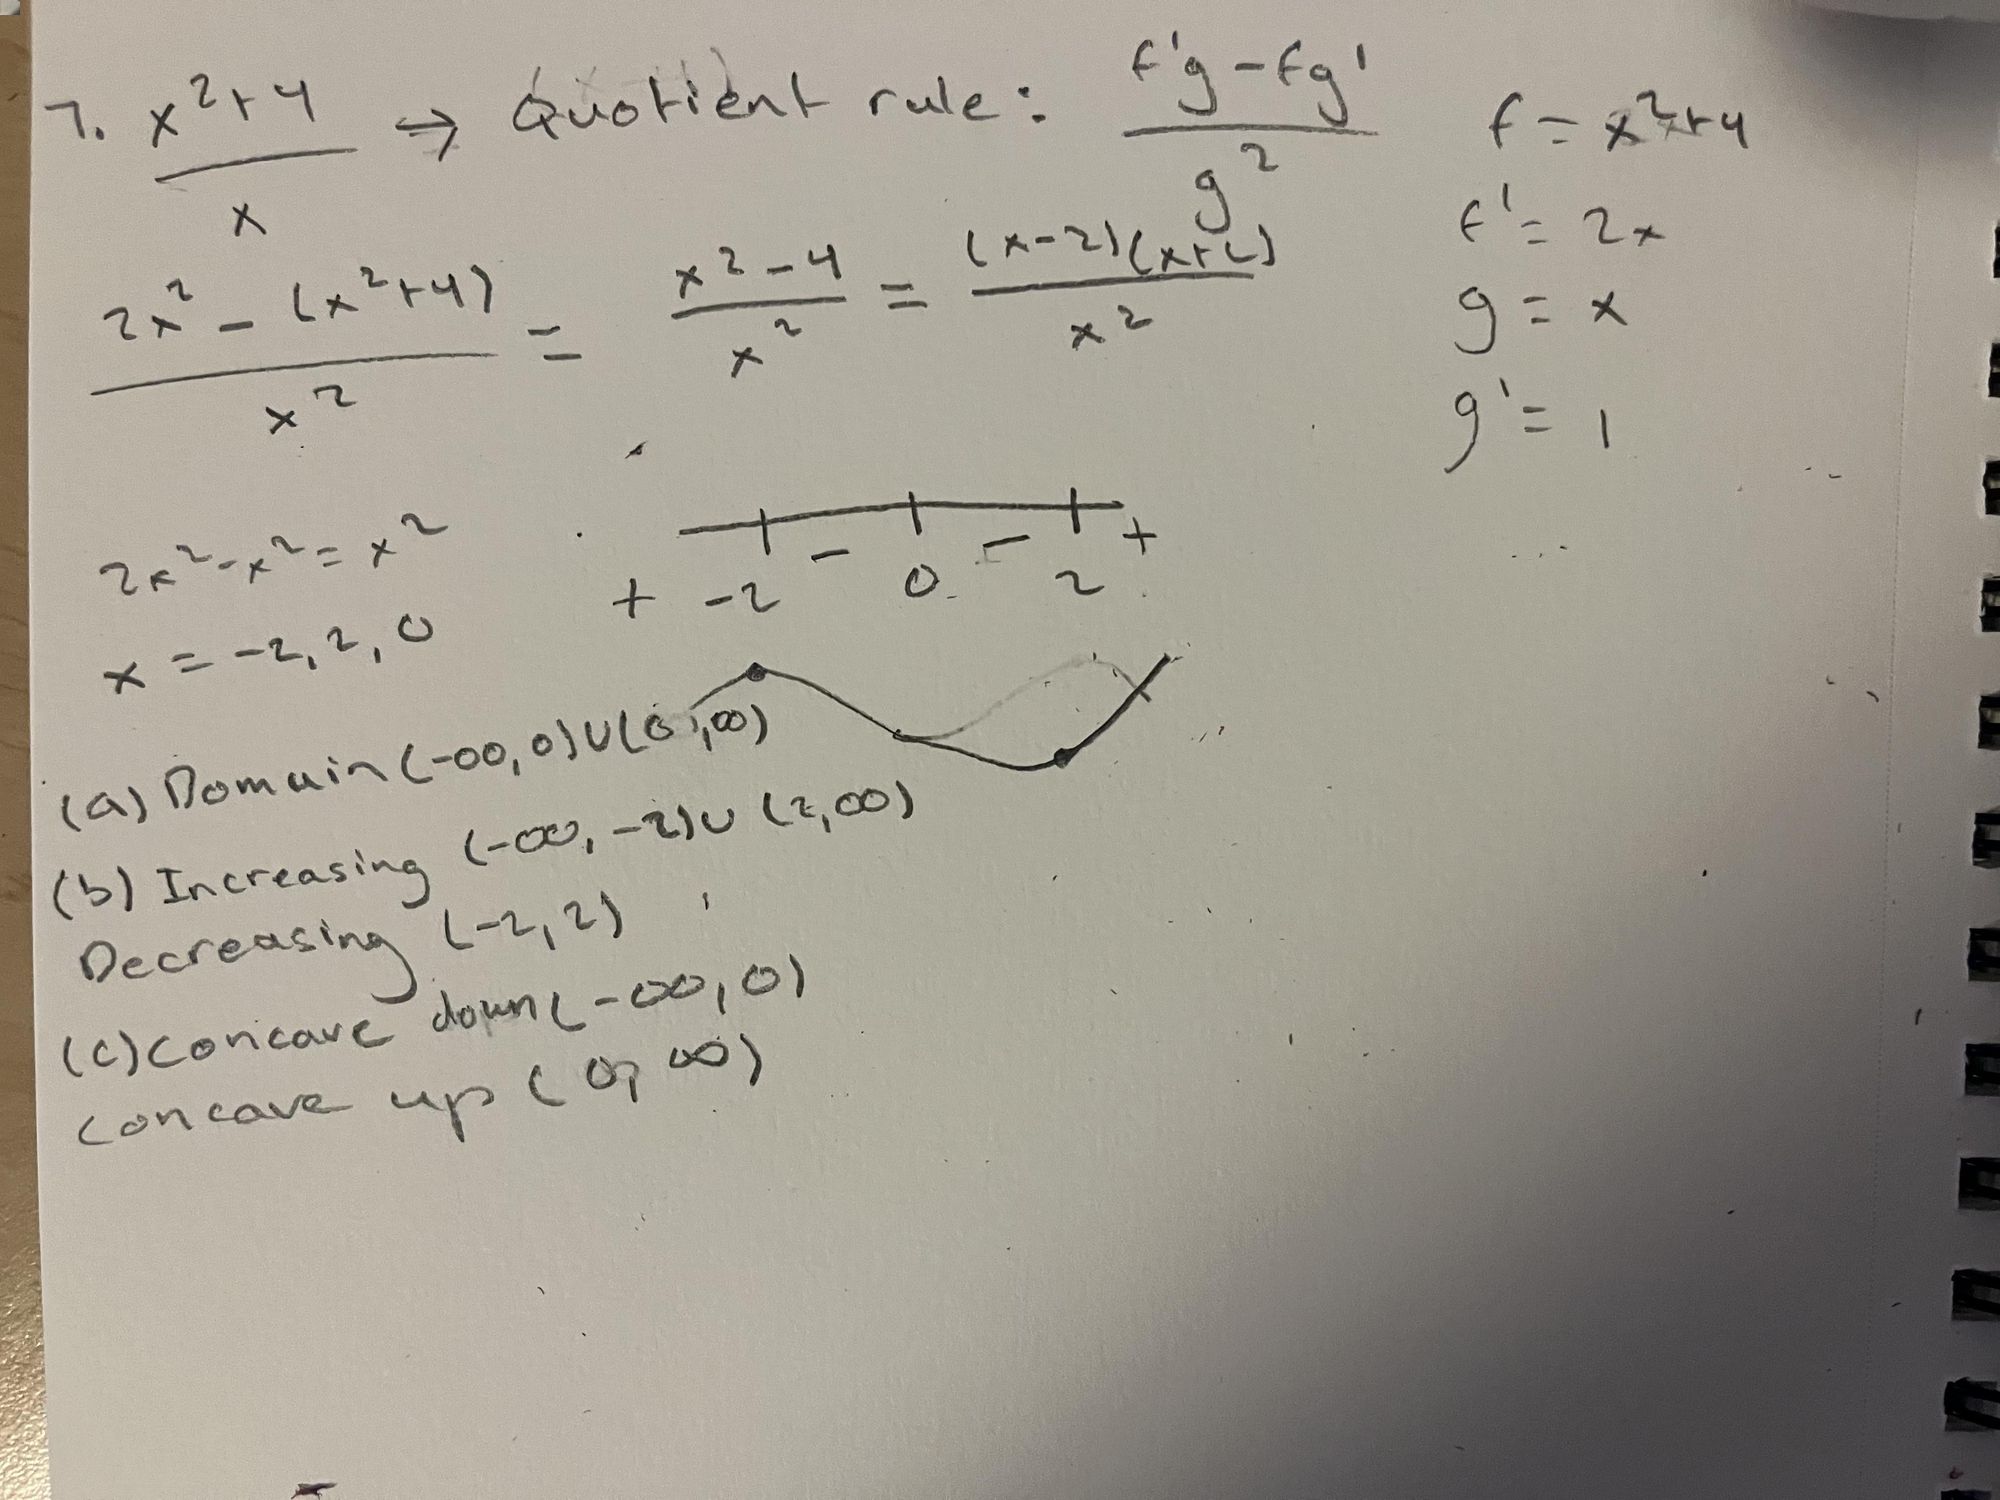 7. x²+4 / x → Quotient rule: f'g - fg' / g²
f = x²+4
f' = 2x
g = x
g' = 1
2x² - (x²+4) / x² = x² - 4 / x² = (x-2)(x+2) / x²
2x² - x² = x²
x = -2, 2, 0
+ -2 - 0 - 2 +
(a) Domain (-∞, 0) U (0, ∞)
(b) Increasing (-∞, -2) U (2, ∞)
Decreasing (-2, 2)
(c) Concave down (-∞, 0)
Concave up (0, ∞)